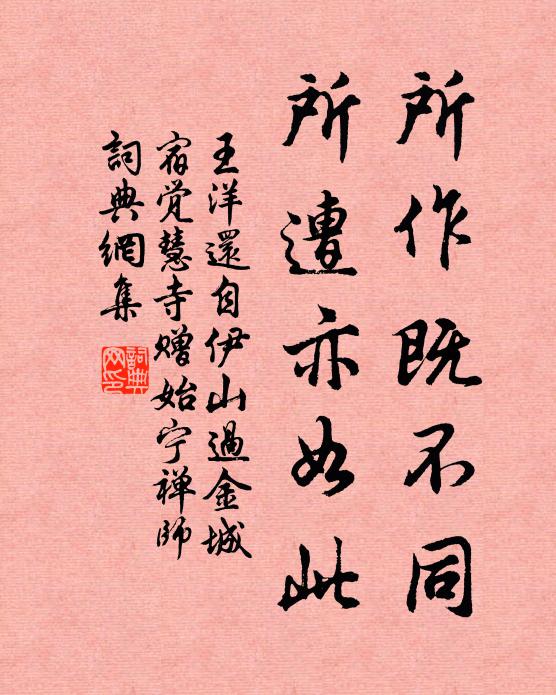 所作既不同
所遭亦如此
王洋還自伊山過金城
宿觉慧寺赠始宁禅師
詞典網集
詞典网印